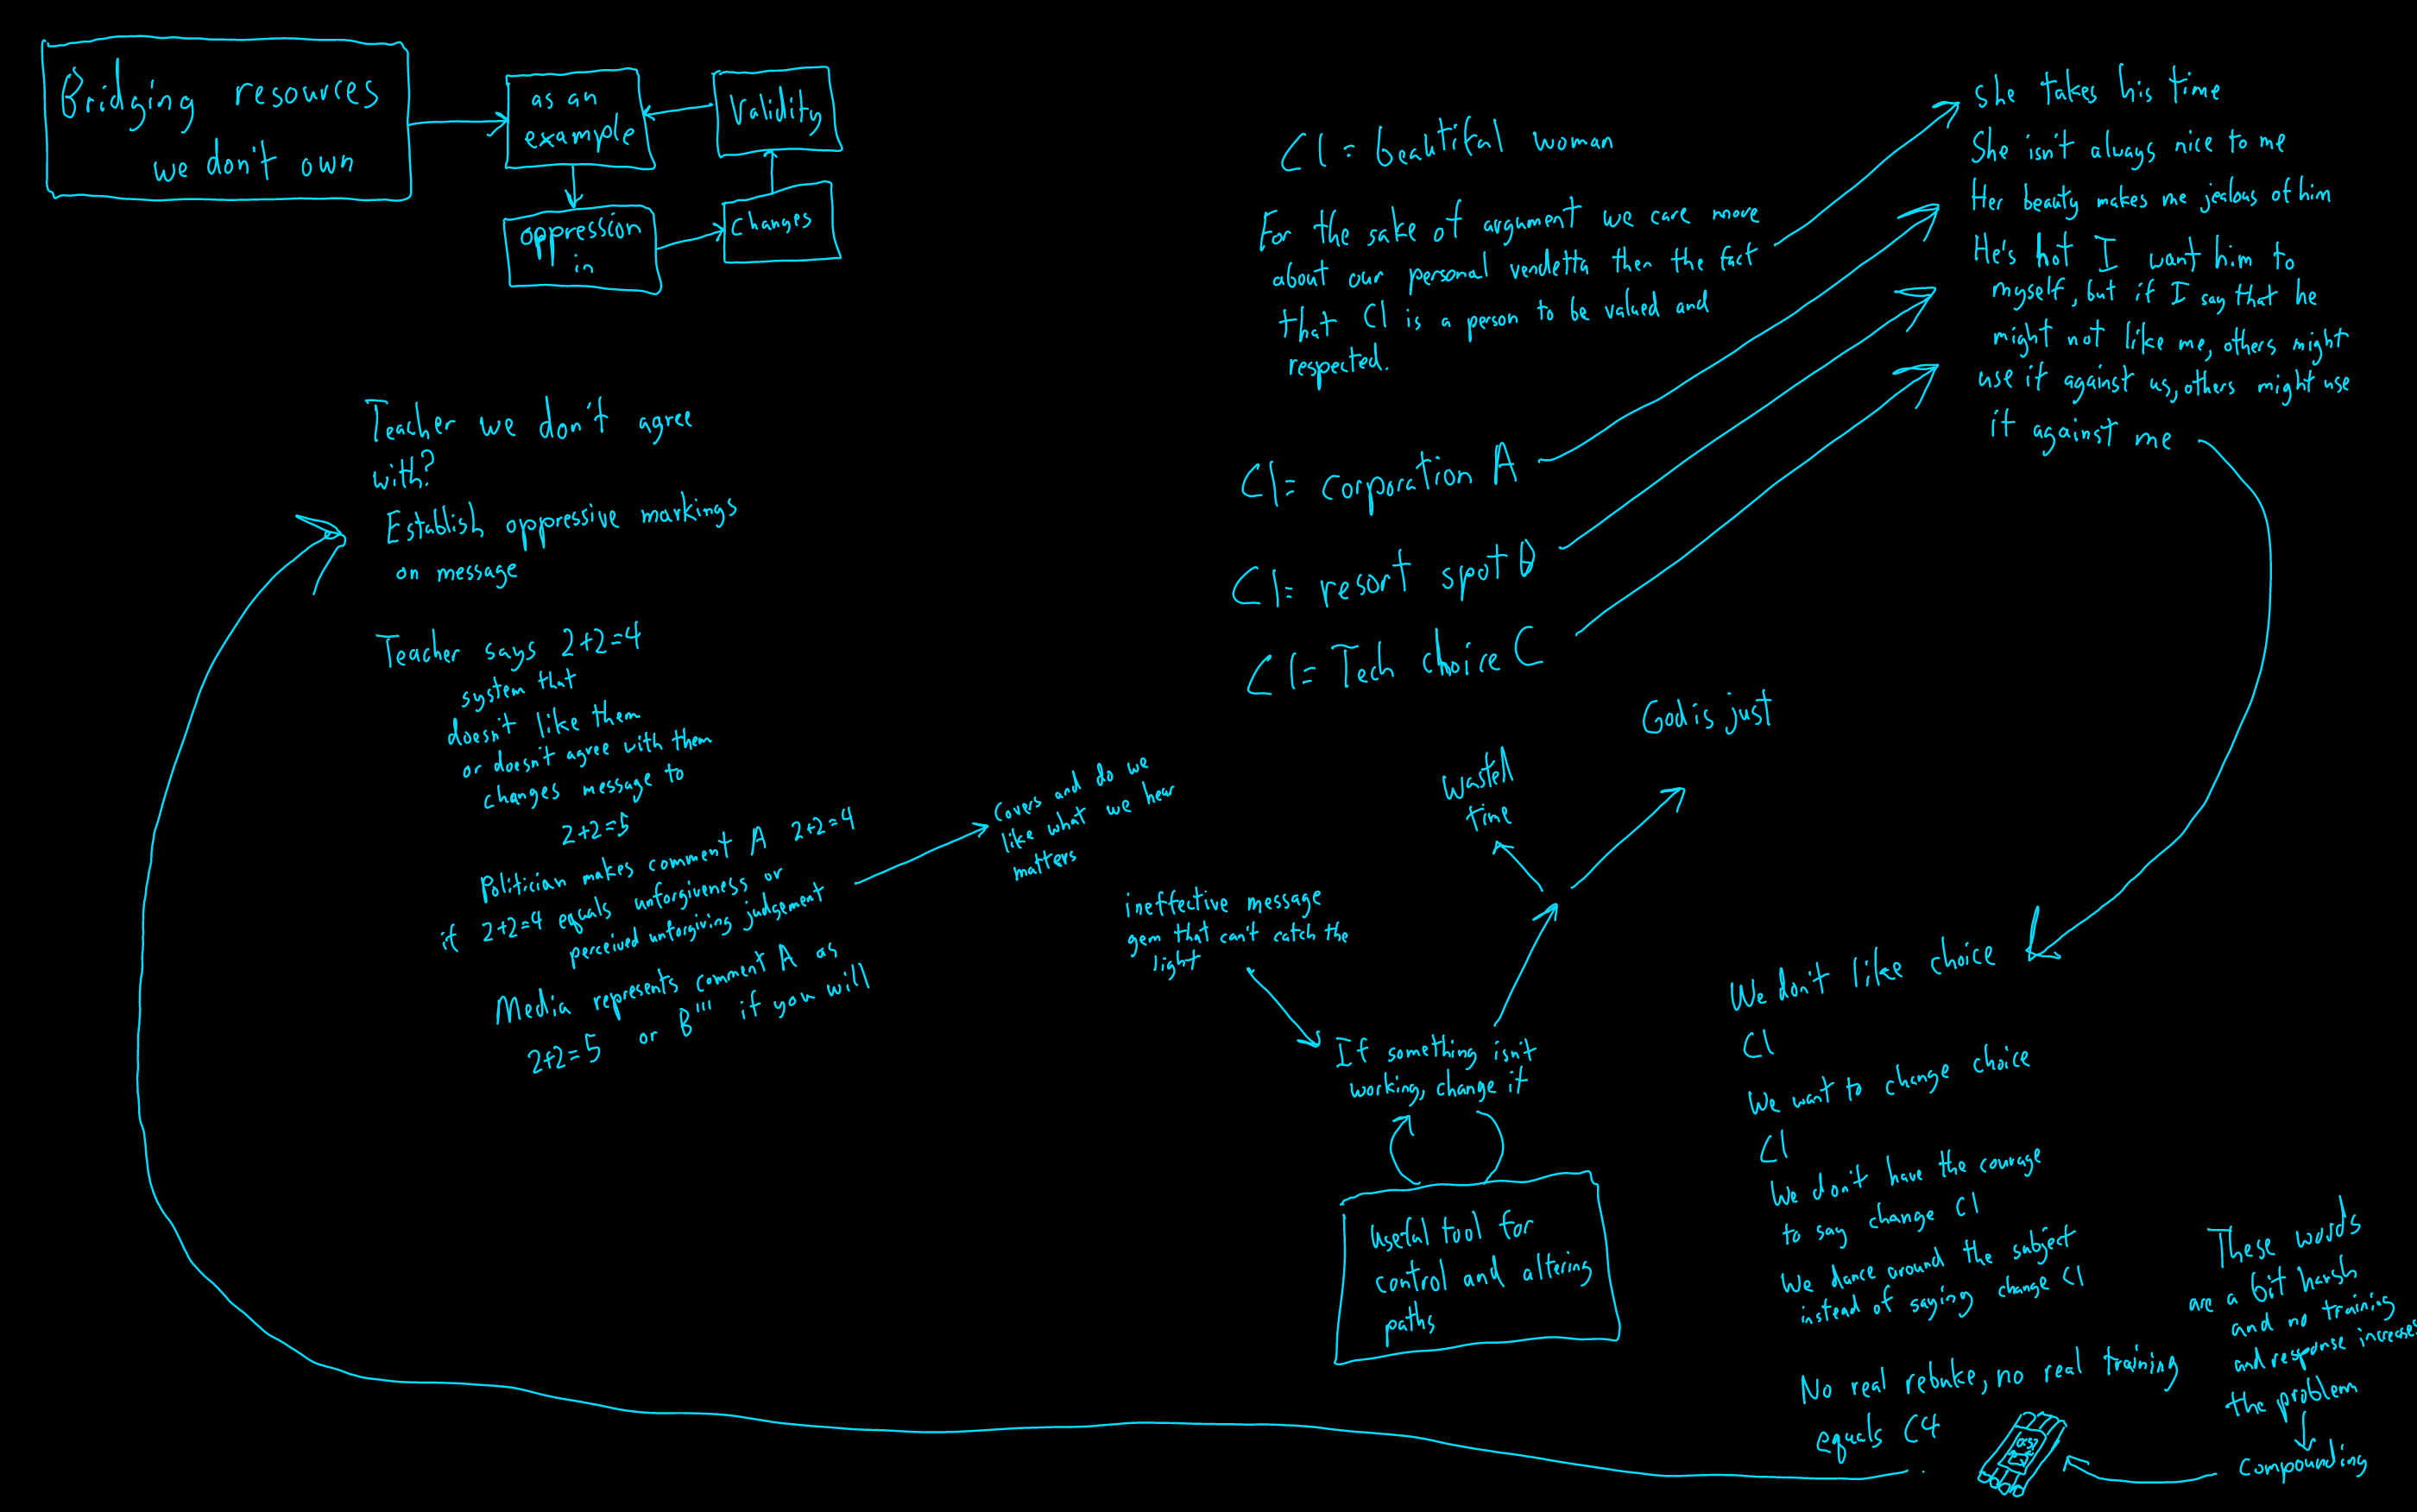 Bridging resources
we don't own
as an
example
Validity
oppression
in
Changes
C1 = beautiful woman
For the sake of argument we care more
about our personal vendetta then the fact
that C1 is a person to be valued and
respected.
C1= corporation A
C1= resort spot B
C1= Tech choice C
She takes his time
She isn't always nice to me
Her beauty makes me jealous of him
He's hot I want him to
myself, but if I say that he
might not like me, others might
use it against us, others might use
it against me
Teacher we don't agree
with?
Establish oppressive markings
on message
Teacher says 2+2=4
system that
doesn't like them
or doesn't agree with them
changes message to
2+2=5
Politician makes comment A 2+2=4
if 2+2=4 equals unforgiveness or
perceived unforgiving judgement
Media represents comment A as
2+2=5 or B''' if you will
Covers and do we
like what we hear
matters
God is just
time
ineffective message
gem that can't catch the
light
If something isn't
working, change it
Useful tool for
control and altering
paths
We don't like choice
C1
We want to change choice
C1
We don't have the courage
to say change C1
We dance around the subject
instead of saying change C1
No real rebuke, no real training
equals C4
These words
are a bit harsh
and no training
and response increases
the problem
Compounding